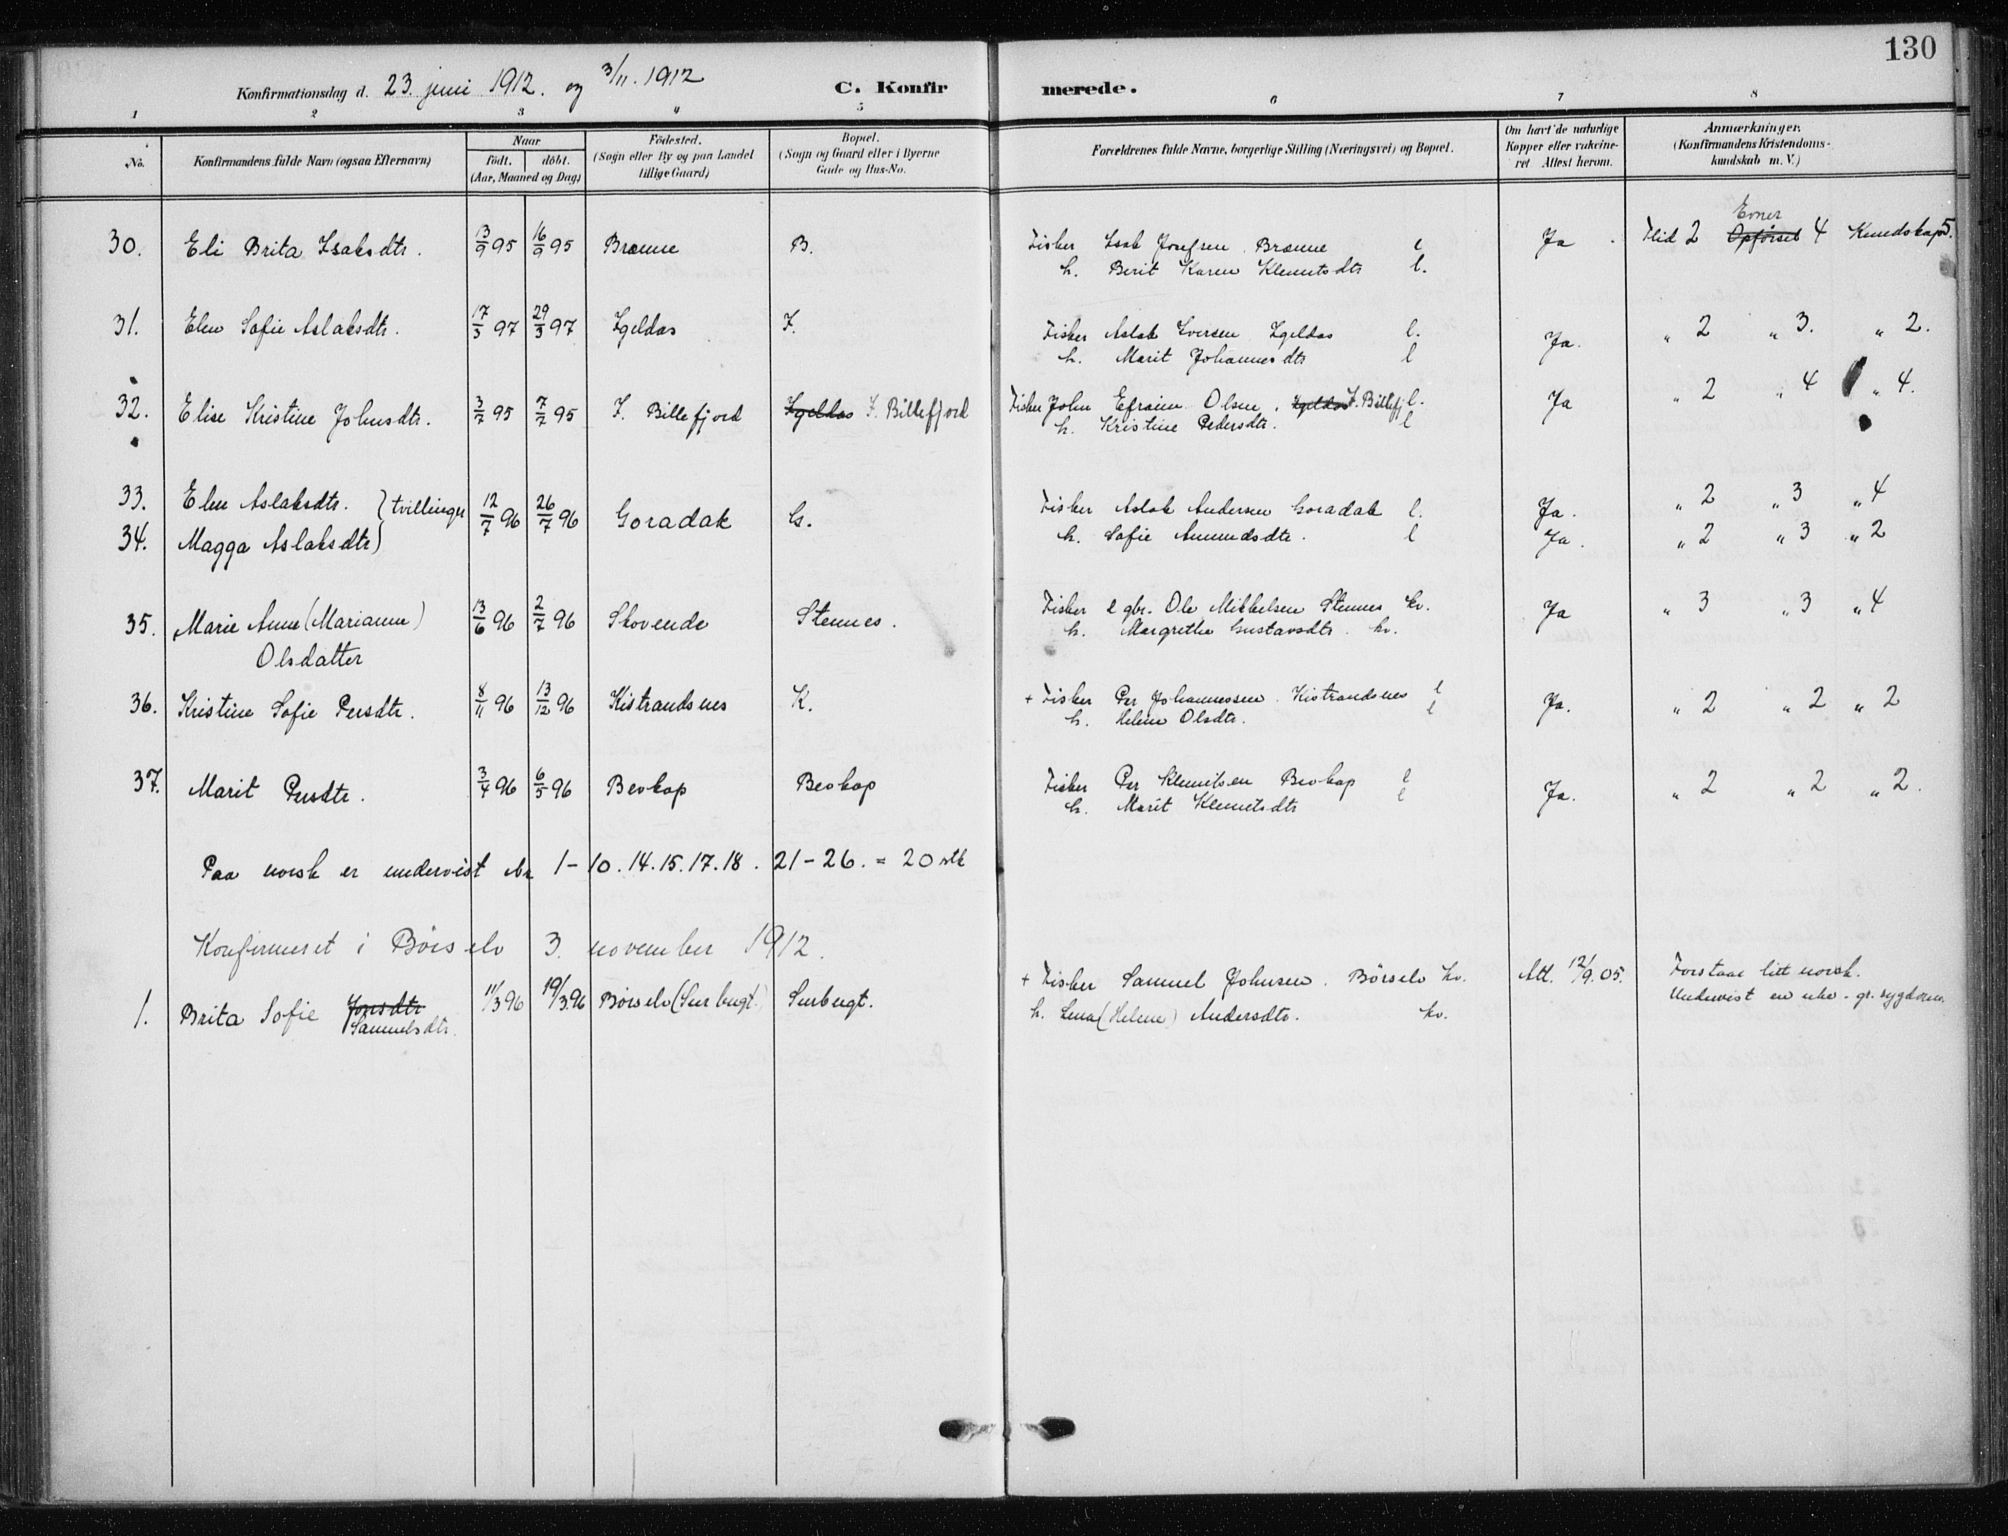 130
Konfirmationsdag d. 23. juni 1912. og 3/11. 1912 C. Konfirmerede.
1 2 3 4 5 6 7 8
No. Konfirmandens fulde Navn (ogsaa Efternavn) Naar født. døbt. (Aar, Maaned og Dag) Fødested. (Sogn eller By og paa Landet tillige Gaard) Bopæl. (Sogn og Gaard eller i Byerne Gade og Hus-No. Forældrenes fulde Navne, borgerlige Stilling (Næringsvei) og Bopæl. Om havt de naturlige Kopper eller vakcineret Attest herom. Anmærkninger. (Konfirmandens Kristendomskundskab m. V.)
Evner
30. Eli Brita Isaksdtr. 13/9 95 16/9 95 Brænne B. Fisker Isak Josefsen Brænne l Ja. Flid 2 Opførsel 4 Kundskap 5.
h. Berit Karen Klemetsdtr l.
31. Elen Sofie Aslaksdtr. 17/3 97 29/3 97 Igeldas I. Fisker Aslak Iversen Igeldas l. Ja. " 2 " 3. " 2.
h. Marit Johannesdtr l
32. Elise Kristine Johnsdtr. 3/7 95 7/7 95 I. Billefjord Igeldas I. Billefjord Fisker John Efraim Olsen. Igeldas I. Billefj l. Ja " 2 " 4 " 4.
h. Kristine Pedersdtr. l
33. Elen Aslaksdtr. } tvillinger 12/7 96 26/7 96 Goradak G. Fisker Aslak Andersen Goradak l. Ja. " 2 " 3 " 4
34. Magga Aslaksdtr } h. Sofie Amundsdtr. l Ja. " 2 " 3 " 2
35. Marie Anne (Marianne) 13/6 96 2/7 96 Skovende Stennes. Fisker & gbr. Ole Mikkelsen Stennes kv. Ja " 3 " 3 " 4
Olsdatter h. Margrethe Gustavsdtr. kv.
36. Kristine Sofie Persdtr. 8/11 96 13/12 96 Kistrandsnes K. + Fisker Per Johannessen. Kistrandsnes l Ja. " 2 " 2 " 2
h. Helene Olsdtr. l
37. Marit Persdtr. 3/4 96 6/5 96 Bevkop Bevkop Fisker Per Klemetsen Bevkop l Ja. " 2 " 2 " 2.
h. Marit Klemetsdtr l
Paa norsk er undervist No 1-10. 14. 15. 17. 18. 21-26. = 20 stk
Konfirmeret i Børselv 3. november 1912.
1. Brita Sofie Jonsdtr 11/3 96 19/3 96 Børselv (Surbugt.) Surbugt. + Fisker Samuel Johnsen. Børselv kv. Att. 12/9. 05. Forstaar litt norsk.
Samuelsdtr. h. Lena (Helene) Andersdtr. kv. Undervist en uke - gr. sygdom.